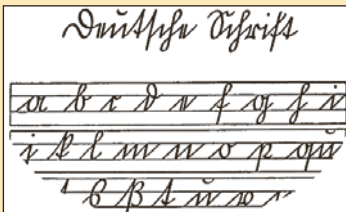 Deutsche Schrift
a b c d e f g h i
j k l m n o p qu
s ß t u v